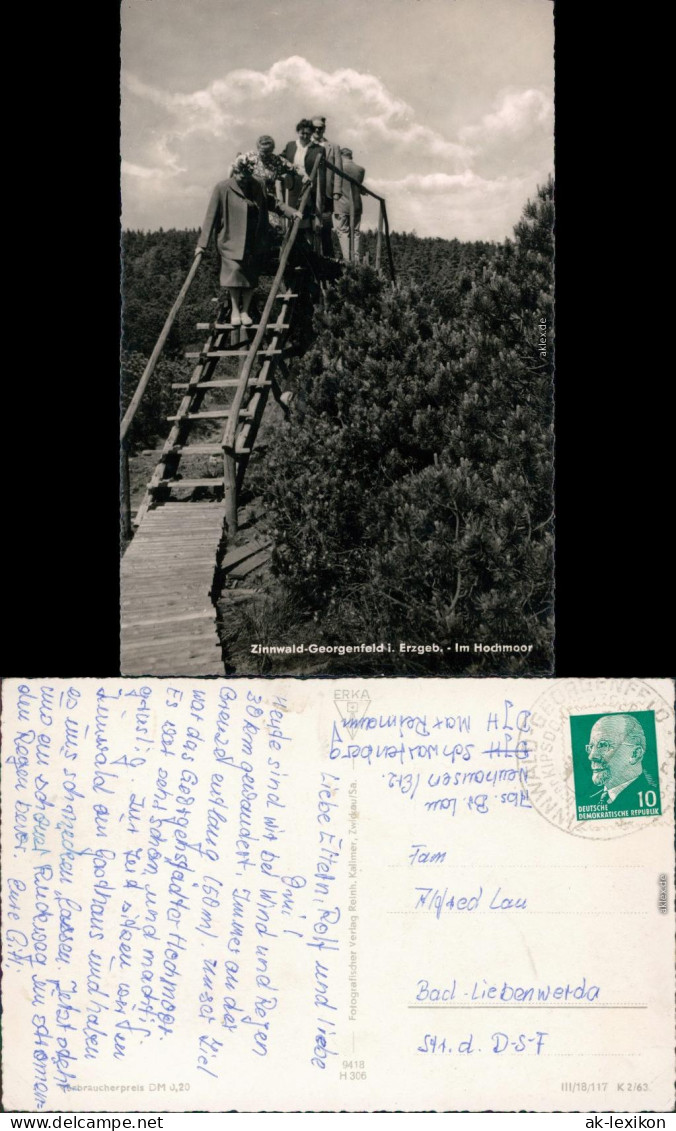 aklex.de
Zinnwald-Georgenfeld i. Erzgeb. - Im Hochmoor
ERKA
Liebe Eltern, Rolf und liebe
Omi!
Heute sind wir bei Wind und Regen
30 km gewandert. Immer an der
Grenze entlang (60m). Unser Ziel
war das Georgenfelder-Hochmoor.
Es war sehr schön und mächtig
grusig. Zur Zeit sitzen wir in
Zinnwald am Gasthaus und haben
es uns schmecken lassen. Jetzt geht
und ein Rucksack im strömen-
den Regen heim. Eure
Fotografischer Verlag Reinh. Kallmer, Zwickau/Sa.
9418
H 306
Verbraucherpreis DM 0,20
Abs. Br. Lau
Neuhausen / Erz.
Schwartenberg
DJH Max Reimann
ZINNWALD-GEORGENFELD
DEUTSCHE
DEMOKRATISCHE REPUBLIK
10
Fam
Alfred Lau
Bad-Liebenwerda
Str. d. D-S-F
III/18/117 K 2/63
aklex.de
© ak-lexikon